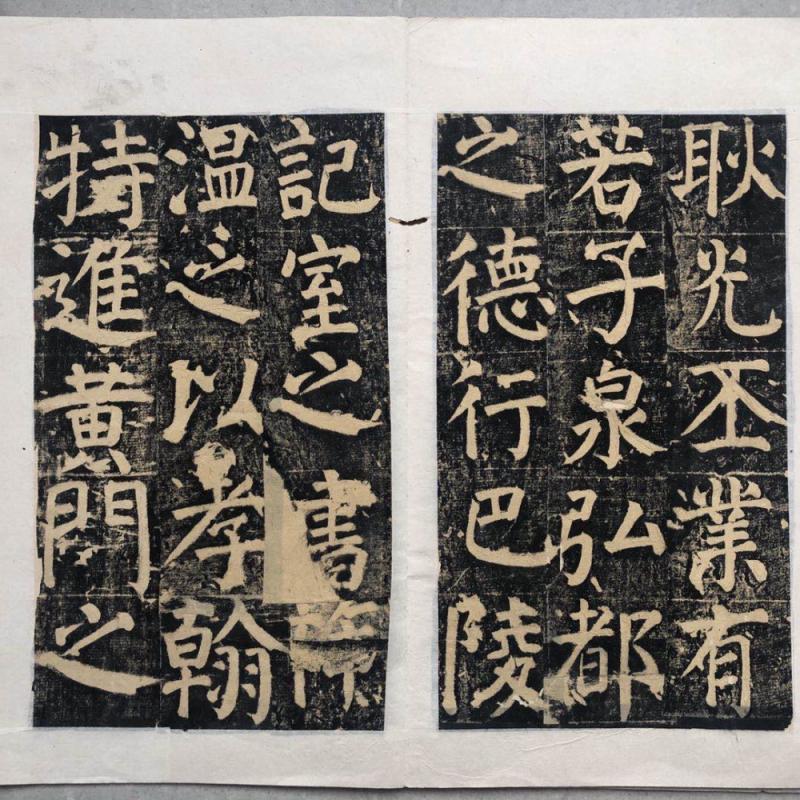 耿光丕業有
若子泉弘都
之德行巴陵
記室之書
溫之以孝翰
特進黃門之